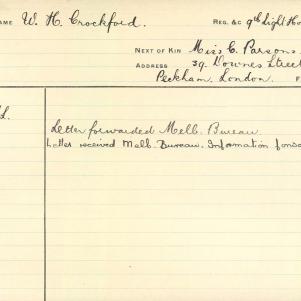 NAME W. H. Crockford. REG. &C 9th Light Ho
NEXT OF KIN Miss C. Parsons
ADDRESS 39. Downes Street
Peckham. London.
Letter forwarded Melb. Bureau.
Letter received Melb. Bureau. Information forwa